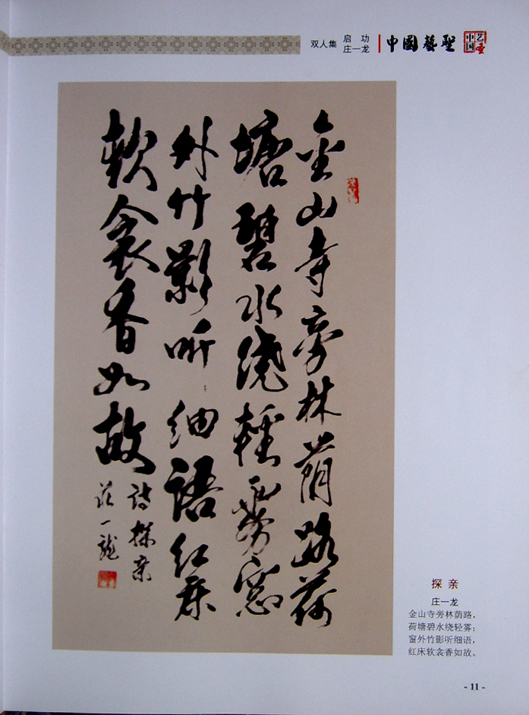 双人集 启功
庄一龙
中国艺圣
中国艺圣
金山寺旁林荫路荷
塘碧水绕轻雾窗
外竹影听细语红床
软衾香如故
诗探亲
庄一龙
探亲
庄一龙
金山寺旁林荫路，
荷塘碧水绕轻雾；
窗外竹影听细语，
红床软衾香如故。
- 11 -